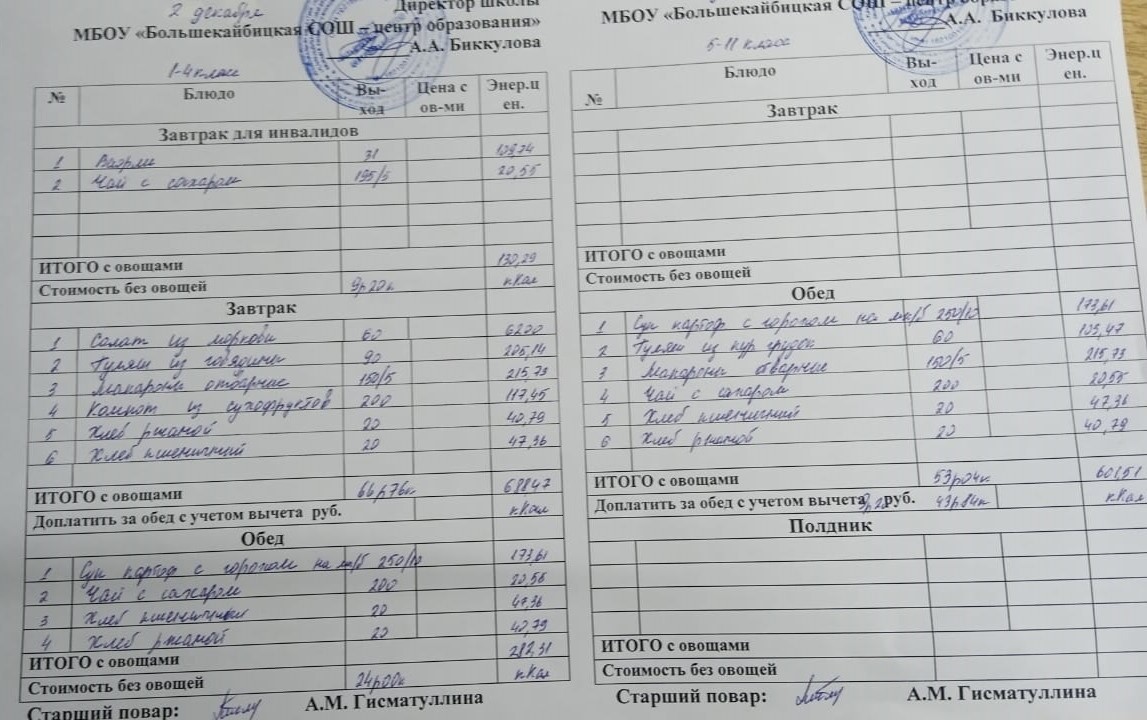 2 декабря
Директор школы
МБОУ «Большекайбицкая СОШ – центр образования»
А.А. Биккулова
1-4 класс
№ Блюдо Вы-ход Цена с ов-ми Энер.ц ен.
Завтрак для инвалидов
1 Вафли 31 109,74
2 Чай с сахаром 195/5 20,55
ИТОГО с овощами 130,29
Стоимость без овощей 9р20к кКал
Завтрак
1 Салат из моркови 60 6200
2 Гуляш из говядины 90 205,14
3 Макароны отварные 150/5 215,73
4 Компот из сухофруктов 200 117,45
5 Хлеб ржаной 20 40,79
6 Хлеб пшеничный 20 47,36
ИТОГО с овощами 66р76к 688,47
Доплатить за обед с учетом вычета руб. кКал
Обед
1 Суп картоф с горохом на мк/б 250/10 173,61
2 Чай с сахаром 200 20,55
3 Хлеб пшеничный 20 47,36
4 Хлеб ржаной 20 40,79
ИТОГО с овощами 282,31
Стоимость без овощей 24р00к кКал
Старший повар: А.М. Гисматуллина
МБОУ «Большекайбицкая СОШ – центр
А.А. Биккулова
5-11 класс
№ Блюдо Вы-ход Цена с ов-ми Энер.ц ен.
Завтрак
ИТОГО с овощами
Стоимость без овощей
Обед
1 Суп картоф с горохом на мк/б 250/10 173,61
2 Гуляш из кур грудок 60 103,47
3 Макароны отварные 150/5 215,73
4 Чай с сахаром 200 20,55
5 Хлеб пшеничный 20 47,36
6 Хлеб ржаной 20 40,79
ИТОГО с овощами 53р04к 601,51
Доплатить за обед с учетом вычета 9р20 руб. 43р84к кКал
Полдник
ИТОГО с овощами
Стоимость без овощей
Старший повар: А.М. Гисматуллина